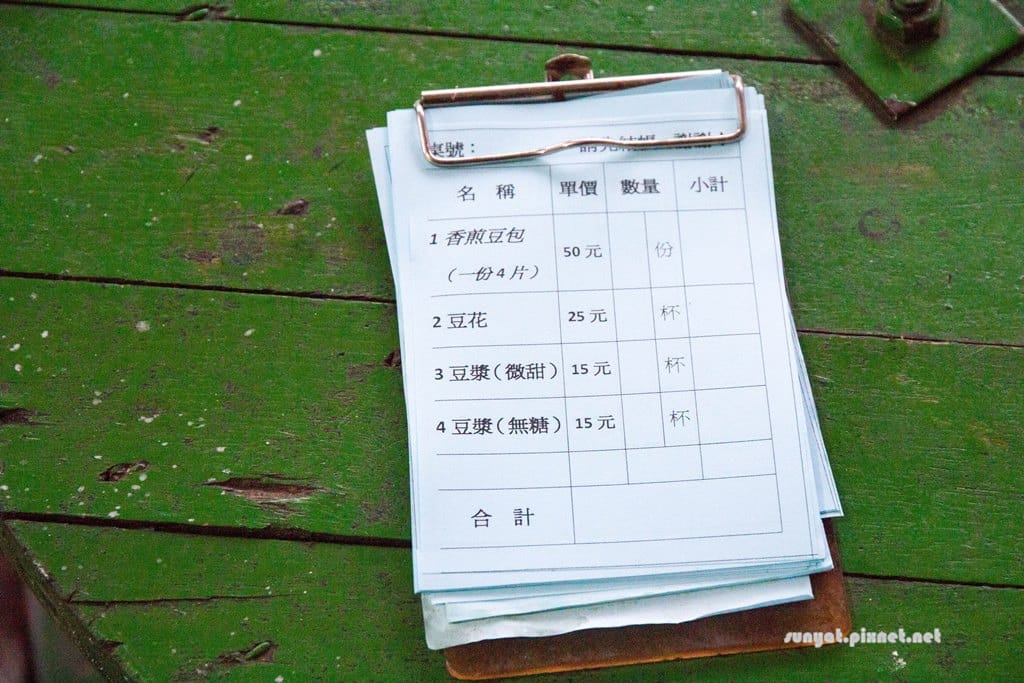 桌號： 請先結帳，謝謝！
名 稱 單價 數量 小計
1 香煎豆包 50 元 份
（一份 4 片）
2 豆花 25 元 杯
3 豆漿（微甜） 15 元 杯
4 豆漿（無糖） 15 元 杯
合 計
sunyat.pixnet.net